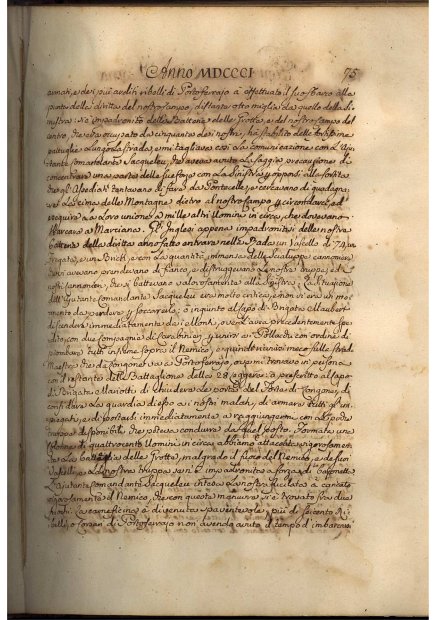 Anno MDCCCI 75
armati, e dei più arditi ribelli di Portoferrajo à effettuato il suo sbarco alla
punta della diritta del nostro campo, distante otto miglia da quello della si-
nistra: si è impadronito della Batteria della Grotta, e del nostro campo del
centro, che era occupato da cinquanta dei nostri, hà stabilito delle fortissime
pattuglie lungo la strada, e mi tagliava così la comunicazione con l'Aju-
tante comandante Jacqueleu che aveva avuto la saggia precauzione di
concentrare una parte della sua forza con la sinistra
che gli Assediati tentavano di fare da Pontecello, e cercavano di guadagna-
re la cima delle Montagne dietro al nostro campo, e circondarci, ed
eseguire la loro unione a mille altri Uomini in circa, che dovevano
sbarcare a Marciana. Gl'Inglesi appena impadroniti della nostra
batteria della diritta anno fatto entrare nella Rada un Vascello di 74, una
Fregata, un Brick, e con la quantità immensa delle Scialuppe cannoniere
che vi avevano prendevano di fianco, e distruggevano la nostra truppa, ed i
nostri cannonieri, che si battevano valorosamente alla sinistra; la situazione
dell'Ajutante comandante Jacqueleu era molto critica, e non vi era un mo-
mento da perdere per soccorrerlo: ò ingiunto al capo di Brigata Maubert
di rendersi immediatamente dai Molini, ove l'aveva precedentemente spe-
dito, con due compagnie di carabinieri, per unirsi a Pollardu con ordine di
piombare tutti insieme sopra il Nemico, e quindi venirsi meco sulla strada
Maestra che da Longone và a Portoferrajo, ov'io mi trovavo in persona
con il restante del Battaglione della 28 leggiera: ò prescritto al capo
di Brigata Mariotti di chiudere le porte del Forte di Longone, di
confidare la guardia di esso ai nostri malati, di armare tutti gl'im-
piegati, e di portarsi immediatamente a raggiungermi con la forza
disponibile che poteva condurre da quel posto. Formata una
di quattrocento Uomini in circa, abbiamo attaccato vigorosamen-
te la batteria della Grotta, malgrado il fuoco del Nemico, e dei suoi
Vascelli, e la nostra truppa se n'è impadronita a forza di bajonetta.
L'ajutante comandante Jacqueleu à caricato
vigorosamente il Nemico, che con questa manuvra si è trovato fra due
fuochi. La carneficina è divenuta spaventevole; più di seicento Ri-
belli, e Corsari di Portoferrajo non avendo avuto il tempo d'imbarcarsi